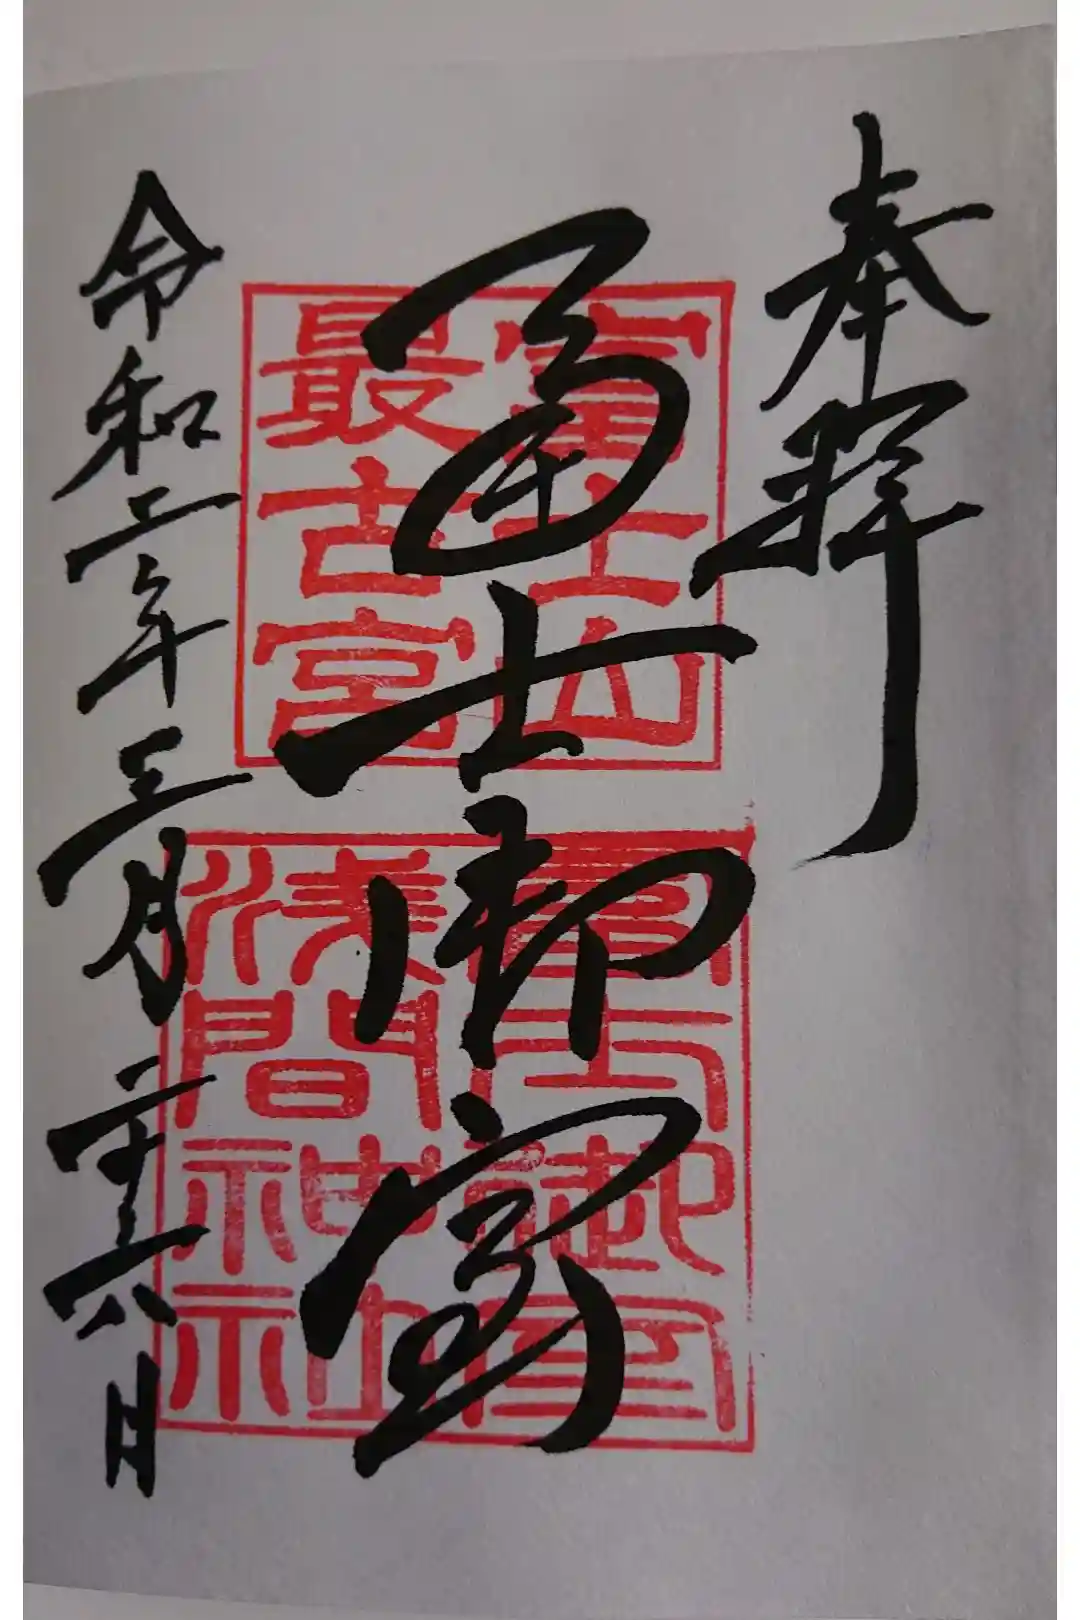 奉拝
富士山
最古宮
冨士御室
冨士御室
浅間神社
令和二年三月二十六日